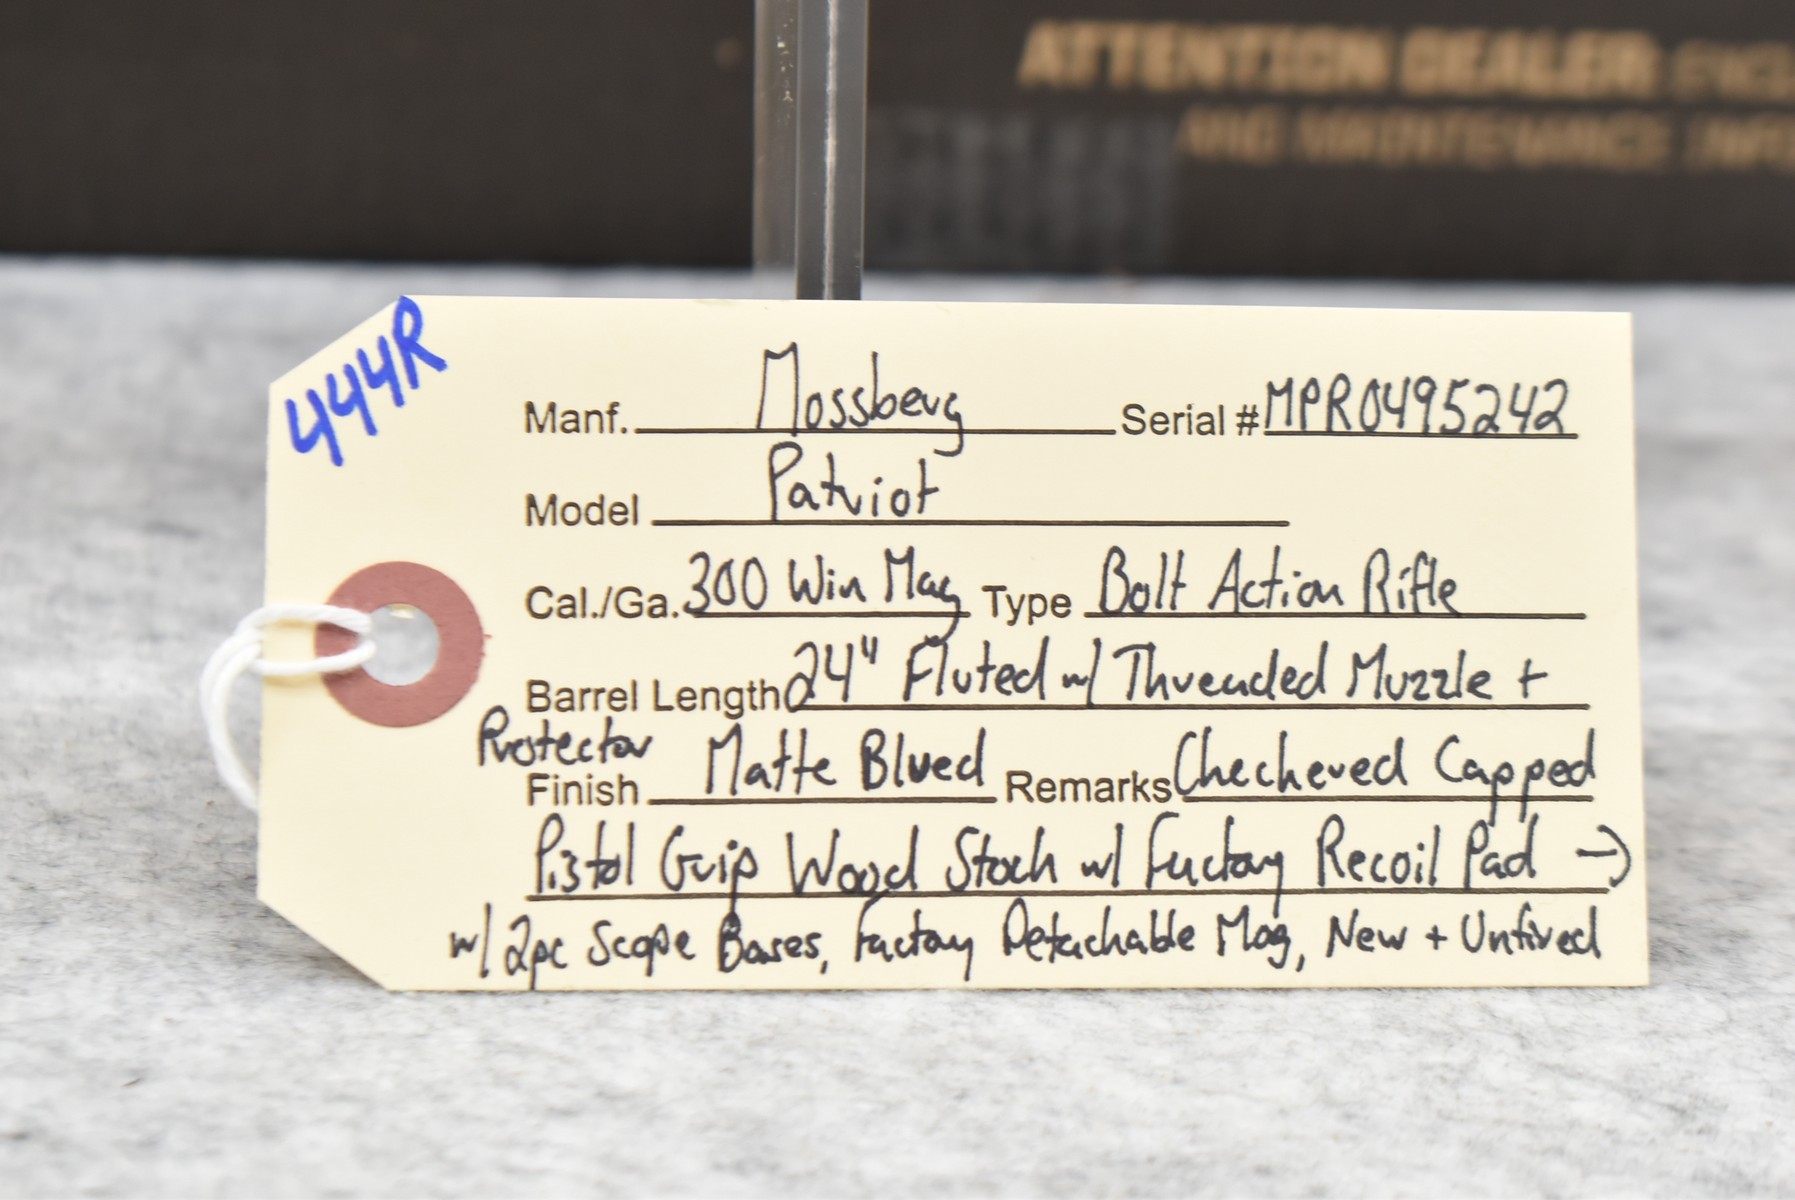 ATTENTION DEALER
AND MAINTENANCE INFO
444R
Manf. Mossberg Serial # MPR0495242
Model Patriot
Cal./Ga. 300 Win Mag Type Bolt Action Rifle
Barrel Length 24" Fluted w/ Threaded Muzzle +
Protector
Finish Matte Blued Remarks Checkered Capped
Pistol Grip Wood Stock w/ Factory Recoil Pad →
w/ 2pc Scope Bases, Factory Detachable Mag, New + Unfired